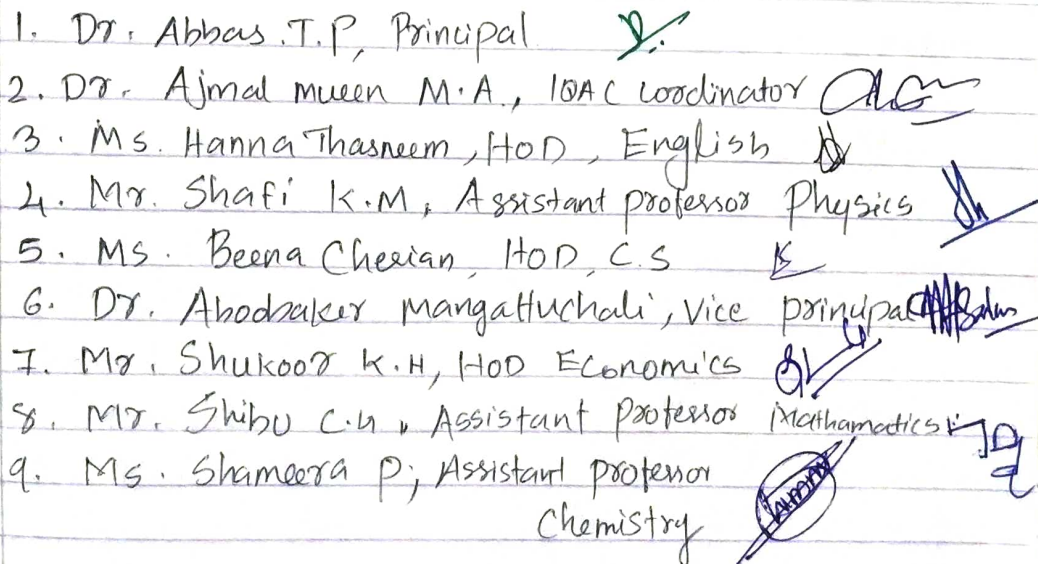 1. Dr. Abbas .T.P, Principal
2. Dr. Ajmal mueen M.A., IQAC coordinator
3. Ms. Hanna Thasneem, HoD, English
4. Mr. Shafi K.M, Assistant professor Physics
5. Ms. Beena Cherian, HoD, C.S
6. Dr. Aboobaker Mangattuchali, Vice principal
7. Mr. Shukoor K.H, HoD Economics
8. Mr. Shibu C.H, Assistant Professor Mathamatics
9. Ms. Shameera P; Assistant professor
Chemistry